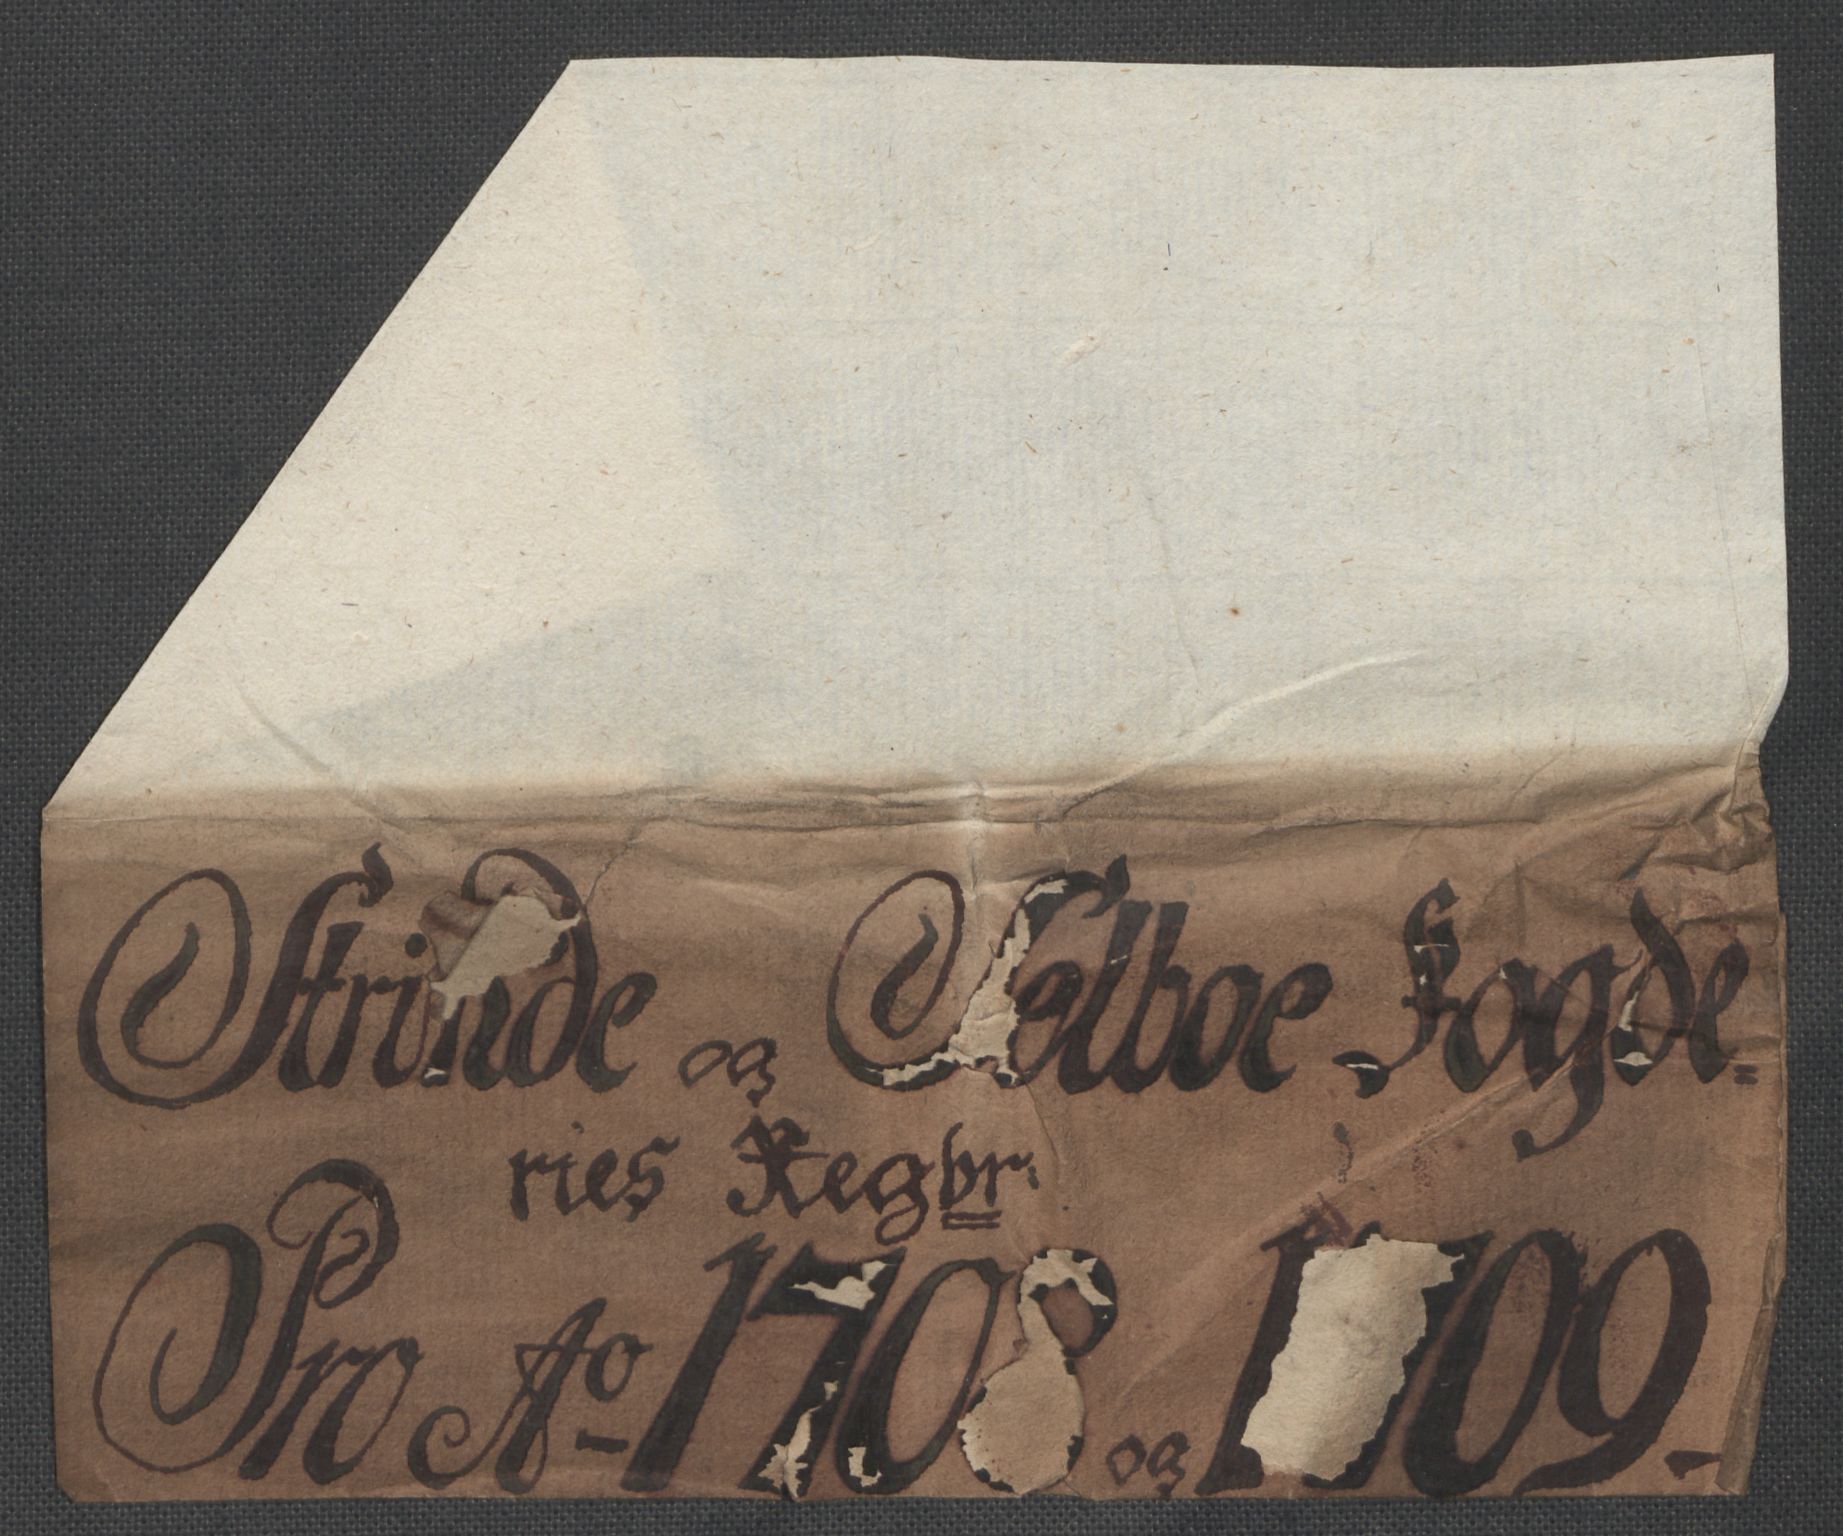 Strinde og Selboe Fogde=
ries Regbr:
Pro Ao 1708 og 1709